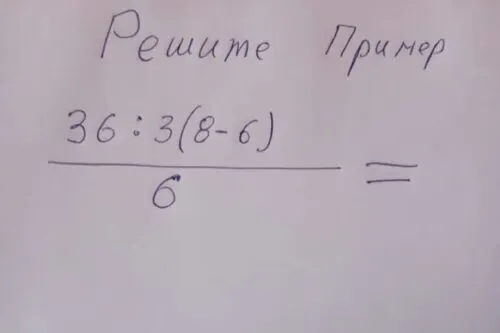 Решите Пример
36:3(8-6)
=
6